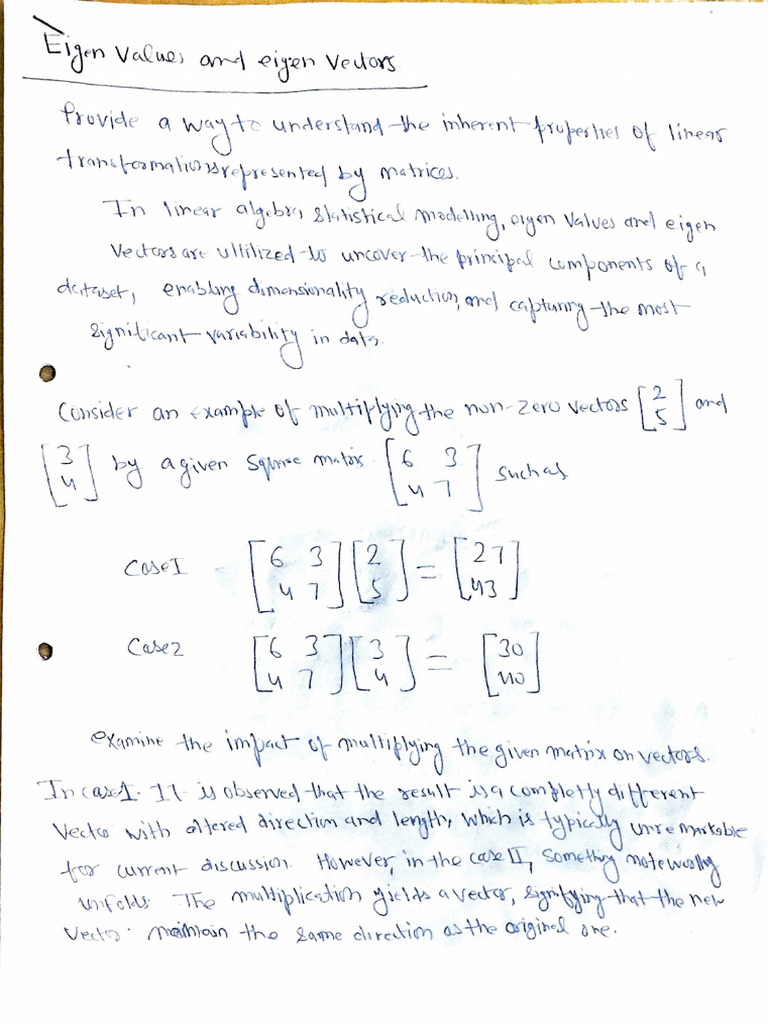 Eigen Values and eigen Vectors
Provide a way to understand the inherent properties of linear
transformations represented by matrices.
In linear algebra, statistical modelling, eigen Values and eigen
Vectors are ultilized to uncover the principal components of a
dataset, enabling dimensionality reduction, and capturing the most
significant variability in data.
Consider an example of multiplying the non-zero vectors [2 5] and
[3 4] by a given Square matrix [6 3 4 7] such as
Case I [6 3 4 7] [2 5] = [27 43]
Case 2 [6 3 4 7] [3 4] = [30 40]
examine the impact of multiplying the given matrix on vectors.
In case 1. It is observed that the result is a completly different
Vector with altered direction and length, which is typically unremarkable
for current discussion. However, in the case II, something noteworthy
unfolds. The multiplication yields a vector, signifying that the new
Vector maintain the same direction as the original one.